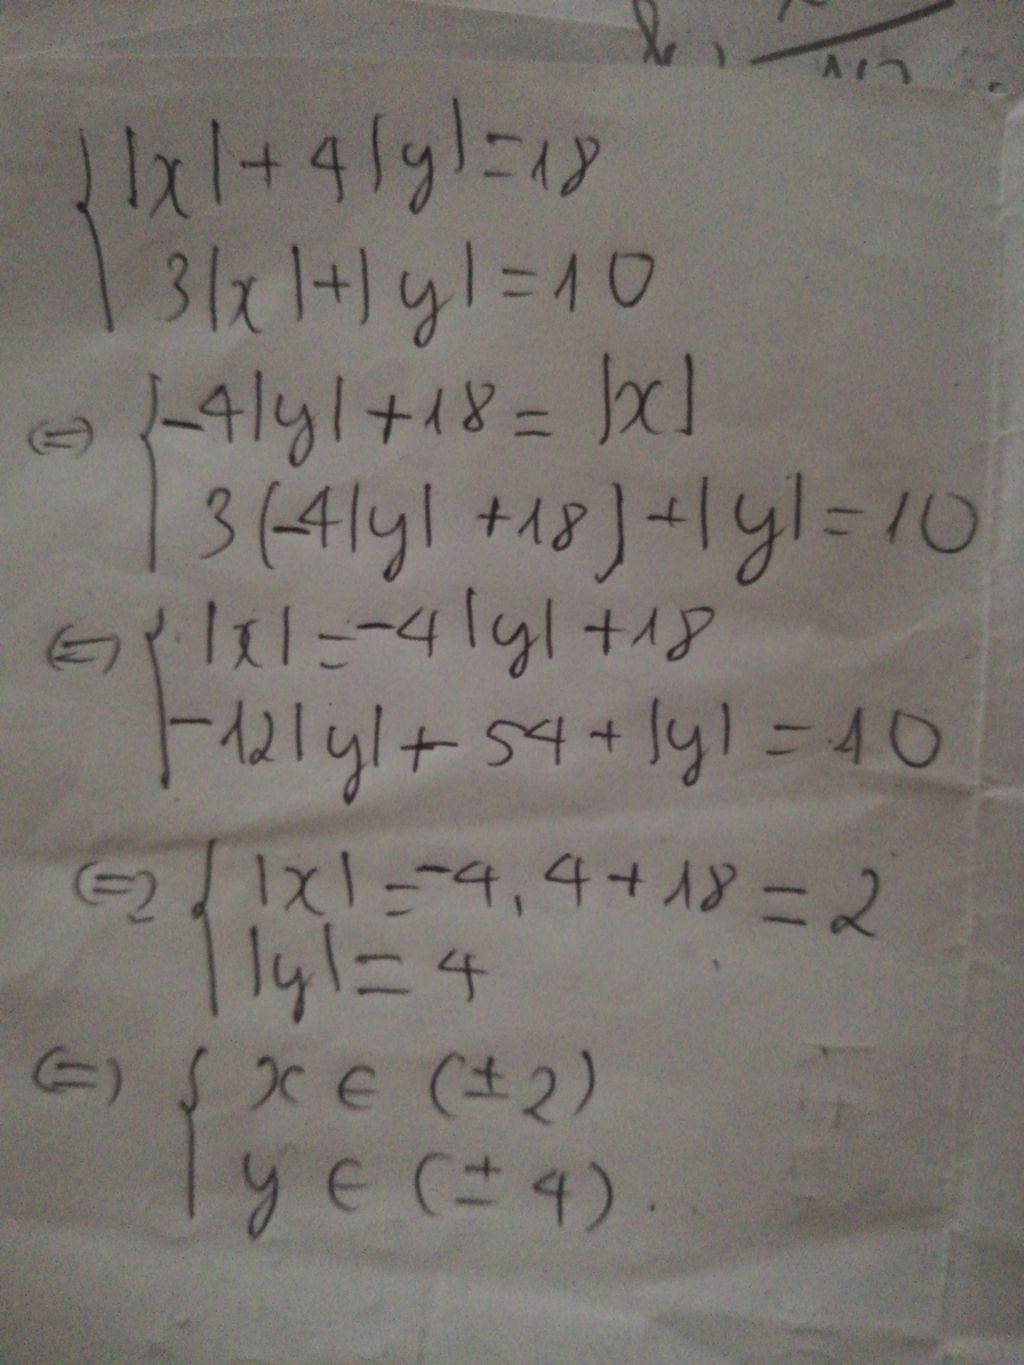 |x| + 4|y| = 18
3|x| + |y| = 10
⇔ -4|y| + 18 = |x|
3(-4|y| + 18) + |y| = 10
⇔ |x| = -4|y| + 18
-12|y| + 54 + |y| = 10
⇔ |x| = -4.4 + 18 = 2
|y| = 4
⇔ x ∈ (±2)
y ∈ (±4).